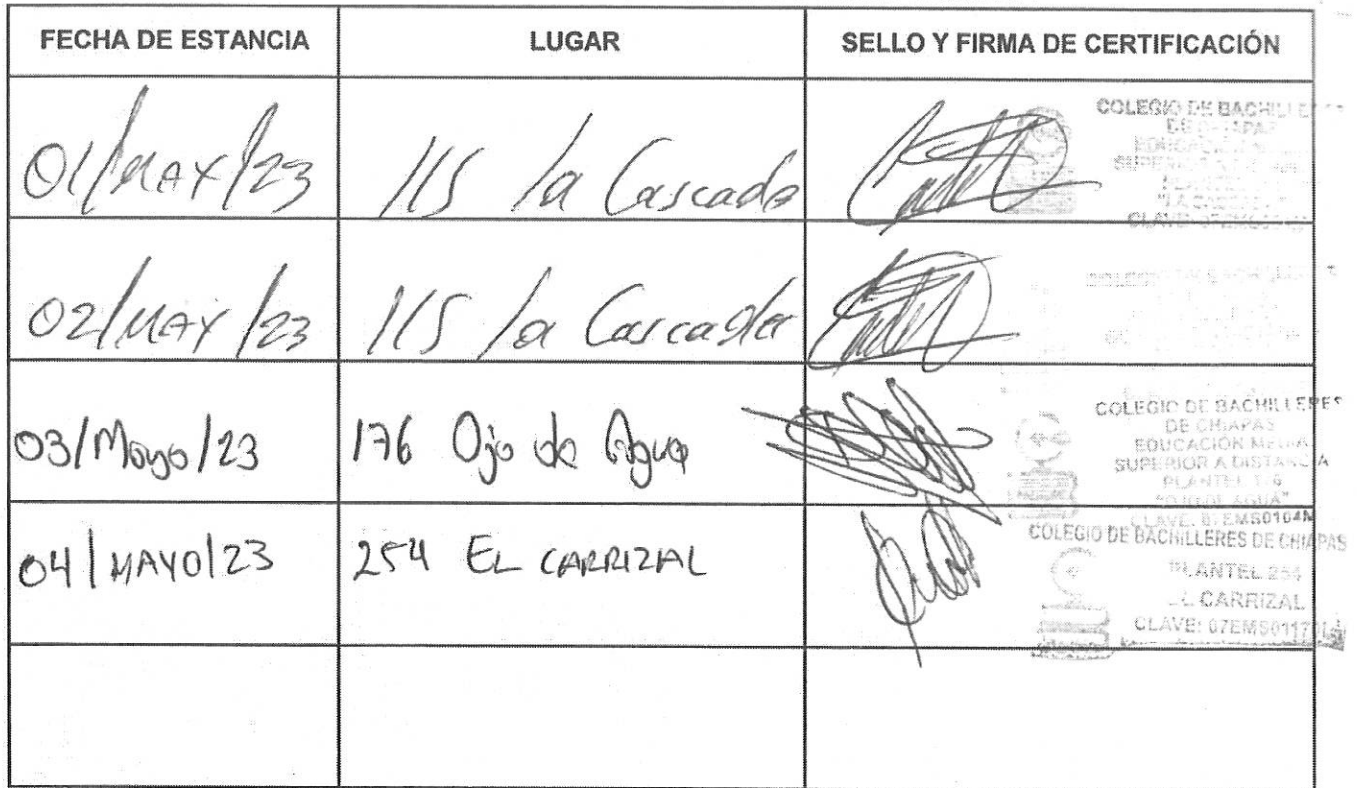 FECHA DE ESTANCIA LUGAR SELLO Y FIRMA DE CERTIFICACIÓN
01/MAY/23 115 la Cascada
COLEGIO DE BACHILLERES
02/MAY/23 115 la Cascada
03/Mayo/23 176 Ojo de Agua
COLEGIO DE BACHILLERES
DE CHIAPAS
EDUCACIÓN MEDIA
SUPERIOR A DISTANCIA
PLANTEL 176
"OJO DE AGUA"
CLAVE: 07EMS0104N
04/MAYO/23 254 EL CARRIZAL
COLEGIO DE BACHILLERES DE CHIAPAS
PLANTEL 254
EL CARRIZAL
CLAVE: